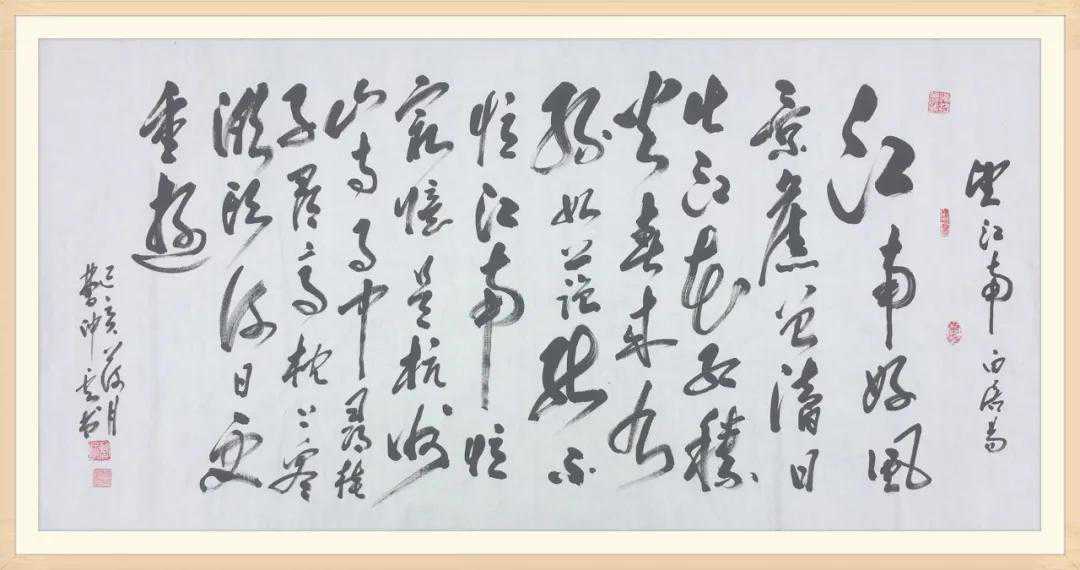 望江南 白居易
江南好风
景舊曾谙日
出江花红勝
火春来水
绿如蓝能不
忆江南忆
最憶是杭州
山寺月中尋桂
子郡亭枕上看
潮头何日更
重遊
己亥荷月
仲云书